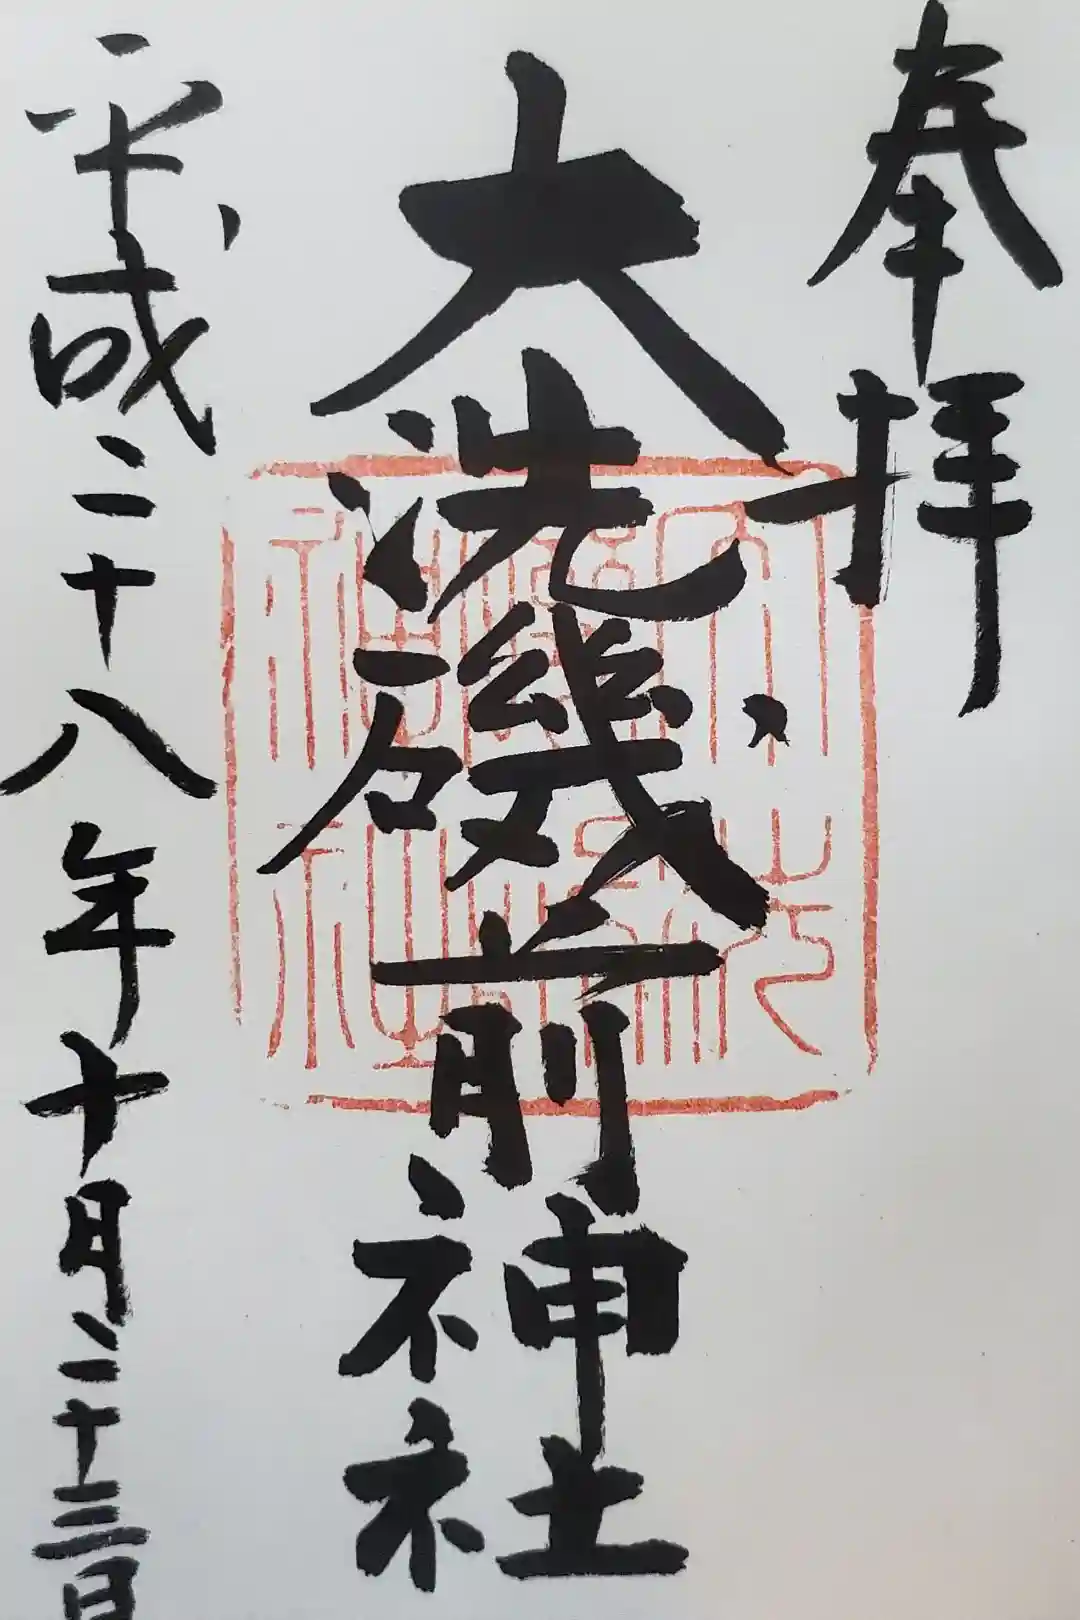 奉拝
大洗磯前神社
平成二十八年十月二十三日